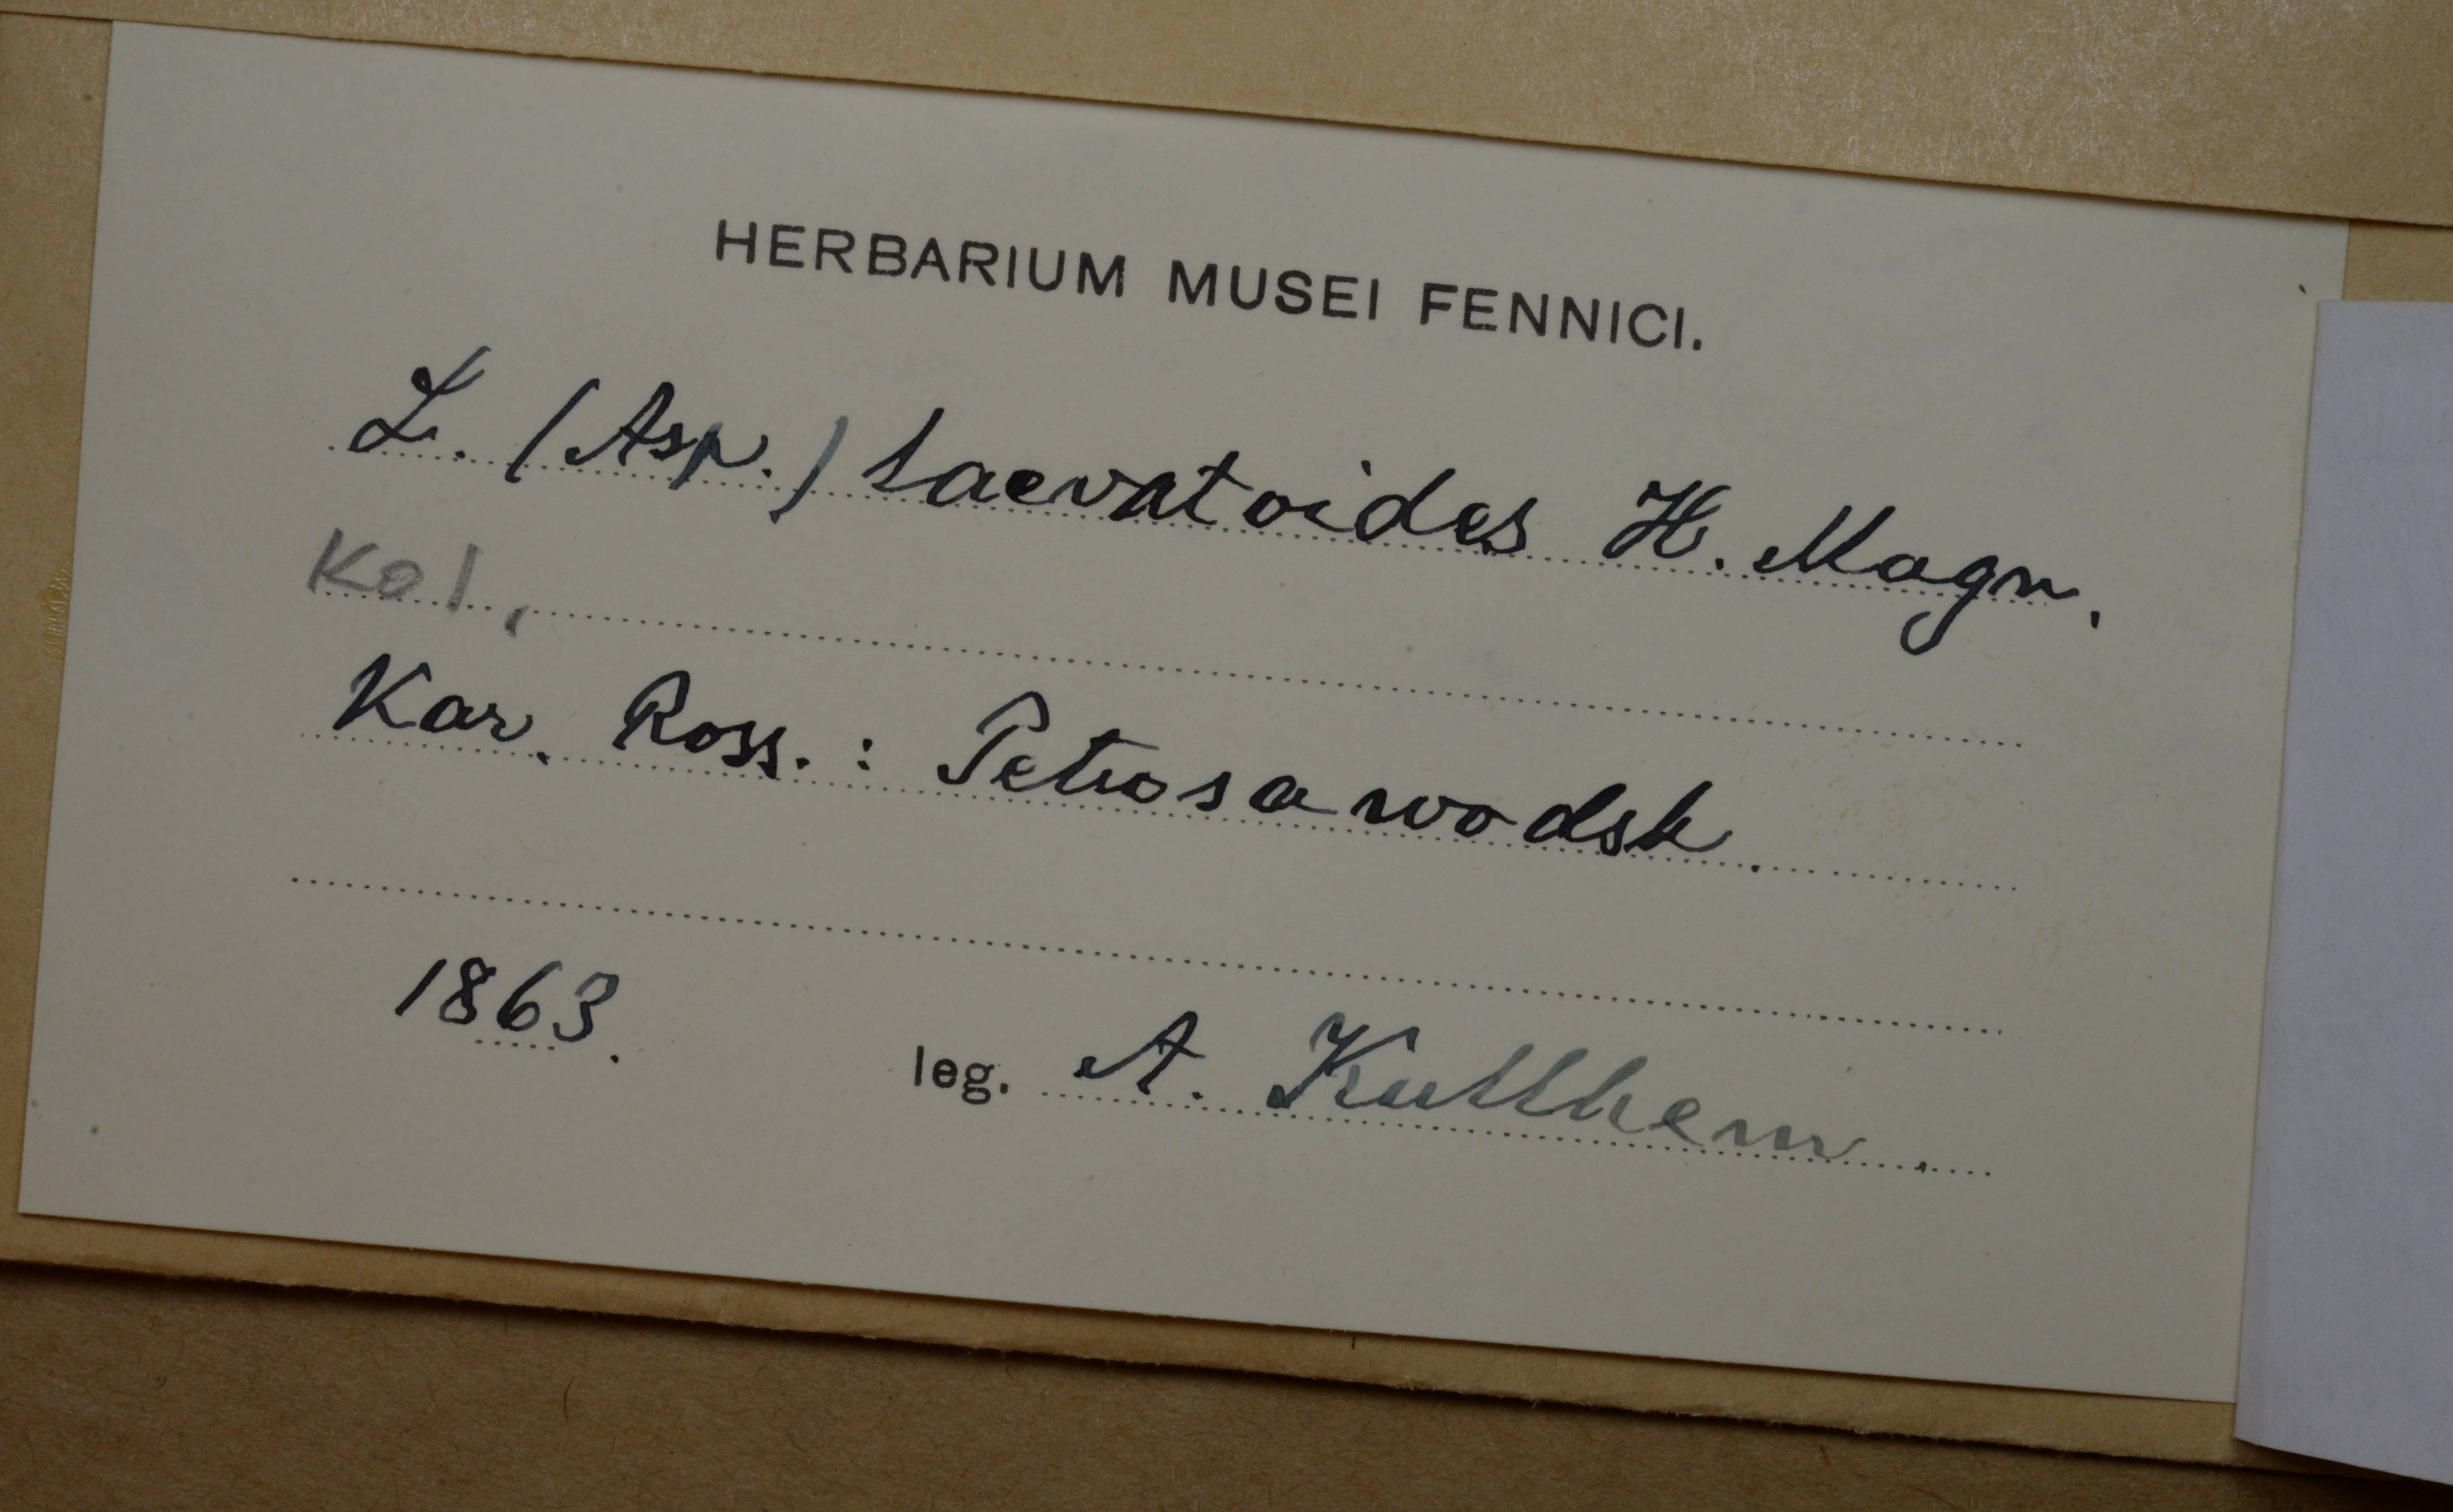 HERBARIUM MUSEI FENNICI.
L. (Asp.) laevatoides H. Magn.
Kol,
Kar. Ross. : Petrosawodsk.
1863.
leg. A. Kullhem.